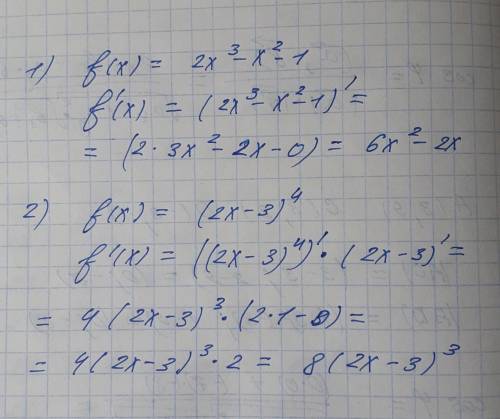 1) f(x) = 2x³-x²-1
f'(x) = (2x³-x²-1)' =
= (2·3x²-2x-0) = 6x²-2x
2) f(x) = (2x-3)⁴
f'(x) = ((2x-3)⁴)'·(2x-3)' =
= 4(2x-3)³·(2·1-0) =
= 4(2x-3)³·2 = 8(2x-3)³